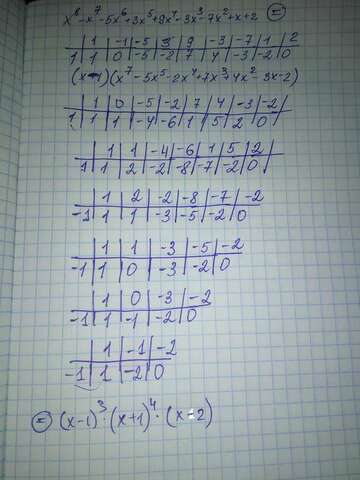 x⁸ - x⁷ - 5x⁶ + 3x⁵ + 9x⁴ - 3x³ - 7x² + x + 2 =
1 | -1 | -5 | 3 | 9 | -3 | -7 | 1 | 2
1 | 1 | 0 | -5 | -2 | 7 | 4 | -3 | -2 | 0
(x-1)(x⁷ - 5x⁵ - 2x⁴ + 7x³ + 4x² - 3x - 2)
1 | 0 | -5 | -2 | 7 | 4 | -3 | -2
1 | 1 | 1 | -4 | -6 | 1 | 5 | 2 | 0
1 | 1 | -4 | -6 | 1 | 5 | 2
1 | 1 | 2 | -2 | -8 | -7 | -2 | 0
1 | 2 | -2 | -8 | -7 | -2
-1 | 1 | 1 | -3 | -5 | -2 | 0
1 | 1 | -3 | -5 | -2
-1 | 1 | 0 | -3 | -2 | 0
1 | 0 | -3 | -2
-1 | 1 | -1 | -2 | 0
1 | -1 | -2
-1 | 1 | -2 | 0
= (x-1)³ · (x+1)⁴ · (x-2)